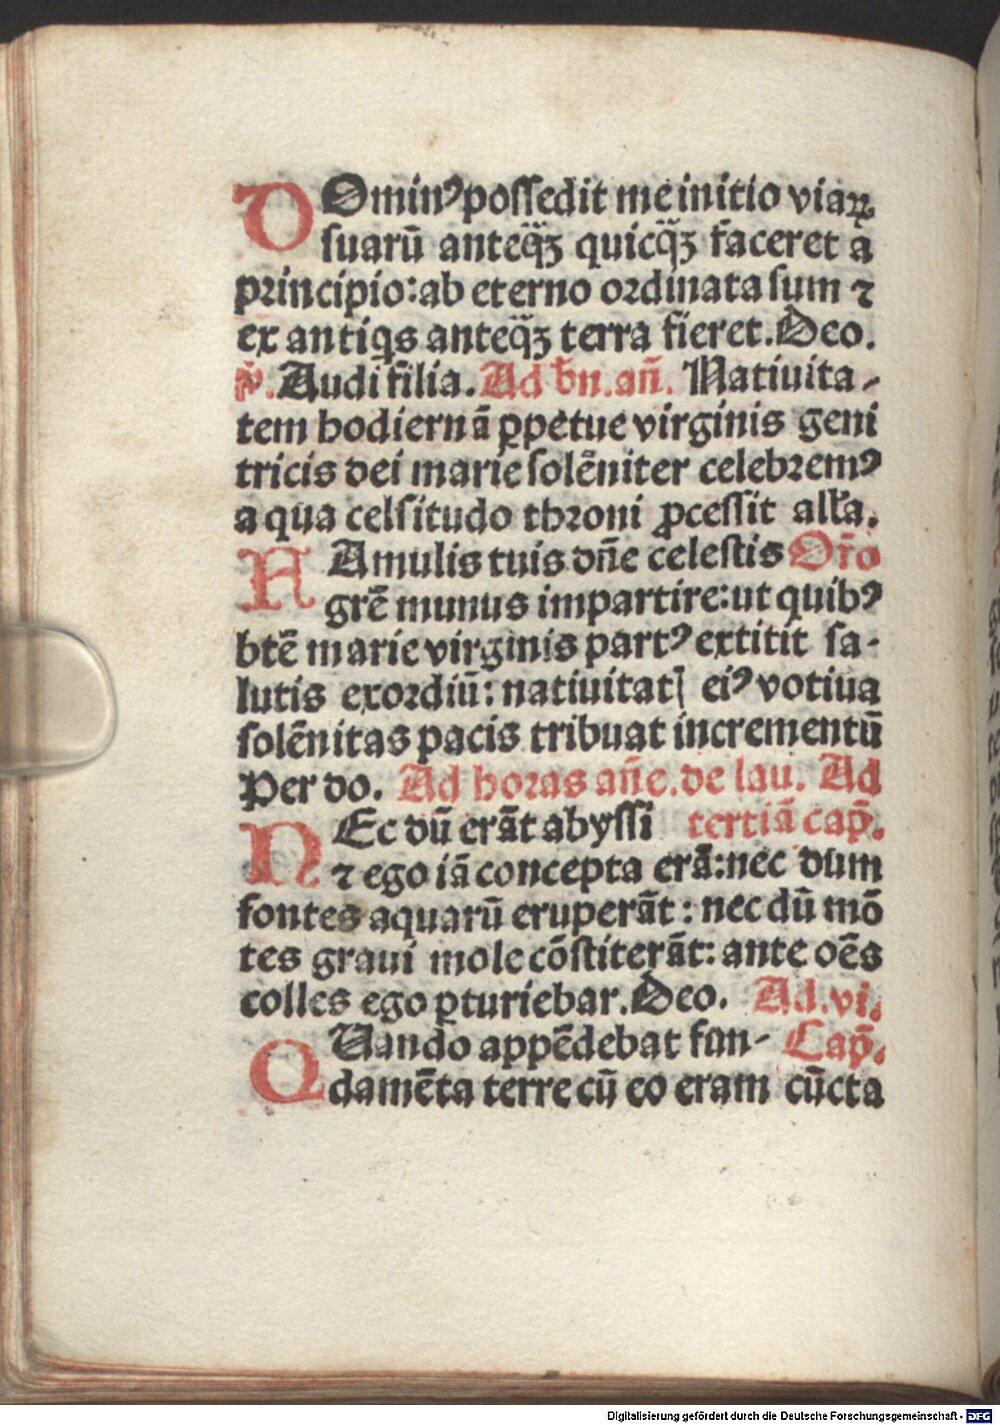 DOminꝰ possedit me initio viaꝝ
suarū anteq̄ꝫ quicq̄ꝫ faceret a
principio: ab eterno ordinata sum ⁊
ex antiqs anteq̄ꝫ terra fieret. Deo.
℣. Audi filia. Ad bn̄. an̄. Natiuita-
tem hodiernā ꝑpetue virginis geni
tricis dei marie solēniter celebremꝰ
a qua celsitudo throni ꝓcessit alla.
FAmulis tuis dn̄e celestis Or̄o
grē munus impartire: ut quibꝰ
btē marie virginis partꝰ extitit sa-
lutis exordiū: natiuitatꝭ eiꝰ votiua
solēnitas pacis tribuat incrementū
Per do. Ad horas an̄e. de lau. Ad
NEc dū erāt abyssi tertiā cap̄.
⁊ ego iā concepta erā: nec dum
fontes aquarū eruperāt: nec dū mō
tes graui mole cōstiterāt: ante oēs
colles ego ꝑturiebar. Deo. Ad. vi.
QUando appēdebat fun- Cap̄.
damēta terre cū eo eram cūcta
Digitalisierung gefördert durch die Deutsche Forschungsgemeinschaft - DFG